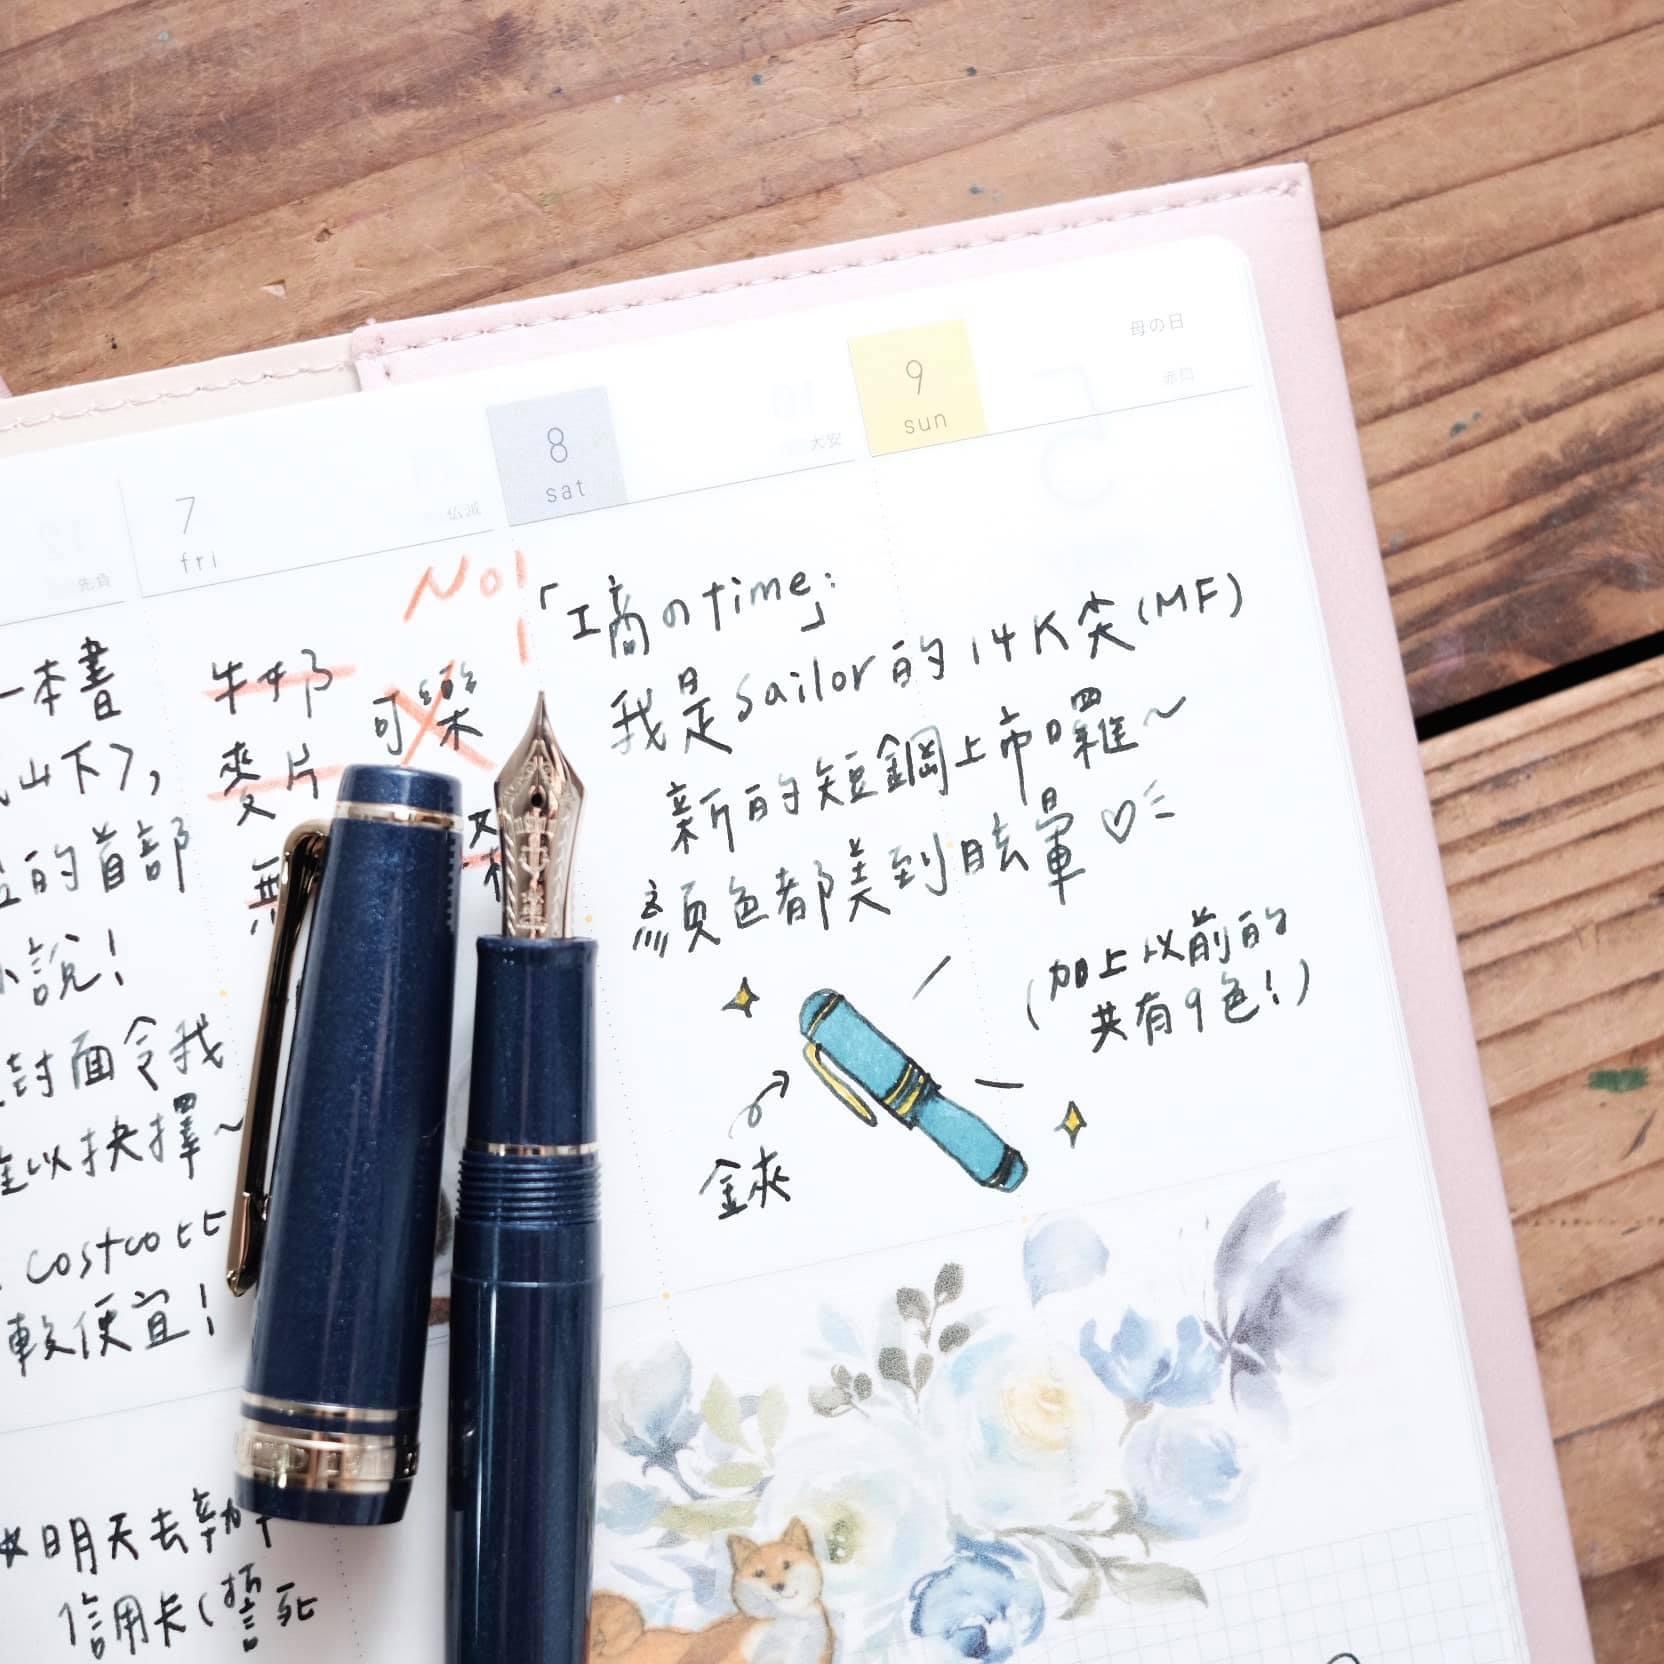 母の日
9
sun
赤口
8
sat
大安
7
fri
仏滅
先負
一本書
山下》,
的首部
小說!
封面令我
難以抉擇~
costco比
較便宜!
明天去辦
信用卡(
死
No!
牛奶
可樂
麥片
「工商のtime」:
我是sailor的14K尖(MF)
新的短鋼上市囉~
顏色都美到眩暈♡
(加上以前的
共有9色!)
金夾